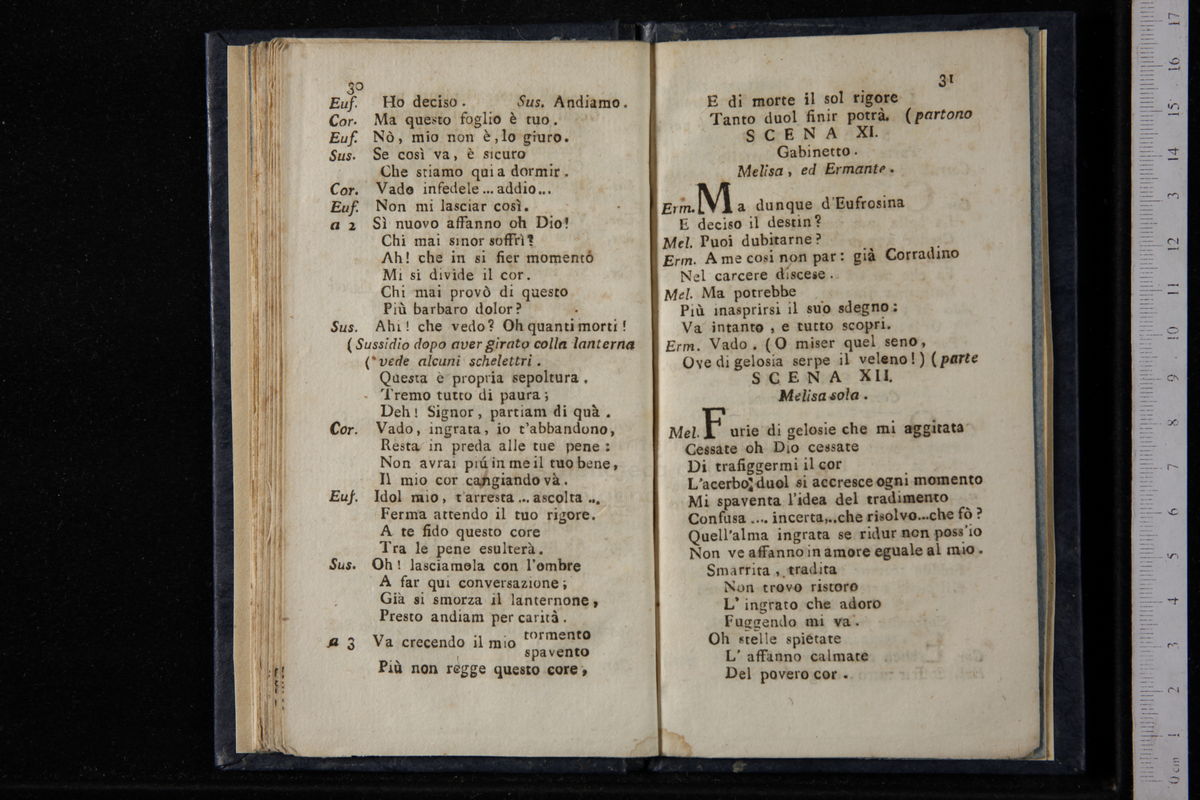 30
Euf. Ho deciso. Sus. Andiamo.
Cor. Ma questo foglio è tuo.
Euf. Nò, mio non è, lo giuro.
Sus. Se così va, è sicuro
Che stiamo qui a dormir.
Cor. Vado infedele... addio...
Euf. Non mi lasciar così.
a 2 Sì nuovo affanno oh Dio!
Chi mai sinor soffrì?
Ah! che in si fier momento
Mi si divide il cor.
Chi mai provò di questo
Più barbaro dolor?
Sus. Ahi! che vedo? Oh quanti morti!
(Sussidio dopo aver girato colla lanterna
(vede alcuni schelettri.
Questa è propria sepoltura.
Tremo tutto di paura;
Deh! Signor, partiam di quà.
Cor. Vado, ingrata, io t'abbandono,
Resta in preda alle tue pene:
Non avrai più in me il tuo bene,
Il mio cor cangiando và.
Euf. Idol mio, t'arresta... ascolta...
Ferma attendo il tuo rigore.
A te fido questo core
Tra le pene esulterà.
Sus. Oh! lasciamola con l'ombre
A far qui conversazione;
Già si smorza il lanternone,
Presto andiam per carità.
a 3 Va crecendo il mio tormento
spavento
Più non regge questo core,
31
E di morte il sol rigore
Tanto duol finir potrà. (partono
SCENA XI.
Gabinetto.
Melisa, ed Ermante.
Erm. Ma dunque d'Eufrosina
E deciso il destin?
Mel. Puoi dubitarne?
Erm. A me cosi non par: già Corradino
Nel carcere discese.
Mel. Ma potrebbe
Più inasprirsi il suo sdegno:
Va intanto, e tutto scopri.
Erm. Vado. (O miser quel seno,
Ove di gelosia serpe il veleno!) (parte
SCENA XII.
Melisa sola.
Mel. Furie di gelosie che mi aggitata
Cessate oh Dio cessate
Di trafiggermi il cor
L'acerbo; duol si accresce ogni momento
Mi spaventa l'idea del tradimento
Confusa .... incerta,..che risolvo...che fò?
Quell'alma ingrata se ridur non poss'io
Non ve affanno in amore eguale al mio.
Smarrita, tradita
Non trovo ristoro
L' ingrato che adoro
Fuggendo mi va.
Oh stelle spietate
L' affanno calmate
Del povero cor.
0 cm 1 2 3 4 5 6 7 8 9 10 11 12 13 14 15 16 17